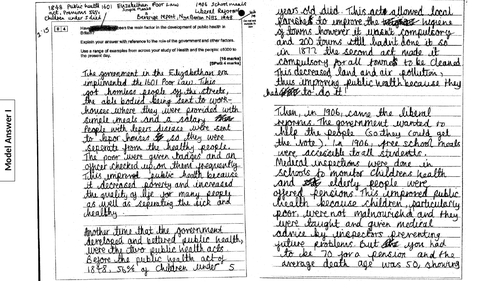 1848 Public health act, Previous 56% Children under 5 died
1601 Elizabethan Poor Law
1906 School meals Liberal Reforms
Beveridge report, NHS 1948
been the main factor in the development of public health in
Explain your answer with reference to the role of the government and other factors.
Use a range of examples from across your study of Health and the people: c1000 to the present day.
[16 marks]
Model Answer 1
The government in the Elizabethan era
implimented the 1601 Poor Law. This
got homeless people of the streets,
the able bodied being sent to work-
houses where they were provided with
simple meals and a salary.
People with lepers disease were sent
to lepor houses so they were
seperate from the healthy people.
The poor were given badges and an
officer checked up on them frequently.
This improved public health because
it decreased poverty and increased
the quality of life for many people
as well as seperating the sick and
healthy.
Another time that the government
developed and bettered public health,
were the two public health acts.
Before the public health act of
1848, 56% of Children under 5
years old died. This acts allowed local
parishes to improve the hygiene
of towns however it wasn't compulsory
and 200 towns still hadn't done it so
in 1877 the second act made it
compulsory for all towns to be cleaned.
This decreased land and air pollution,
thus improving public health because they
had to do it!
Then, in 1906, came the liberal
reforms. The government wanted to
help the people (so they could get
the vote). In 1906, free school meals
were accessible to all students.
Medical inspections were done in
schools to monitor childrens health
and elderly people were
offered pensions. This improved public
health because children, particularly
poor were not malnourished and they
were taught and given medical
advice by inspectors preventing
future problems. But you had
to be 70 for a pension and the
average death age was 50, showing